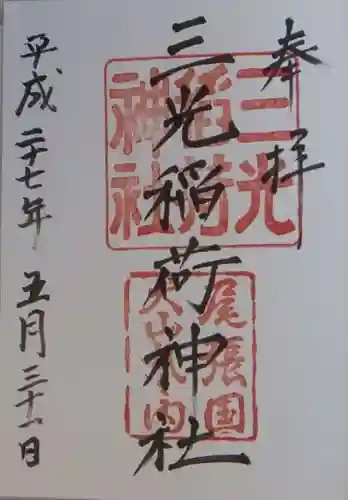 奉拝
三光稲荷神社
平成二十七年五月三十一日
三光
稲荷
神社
尾張国
犬山城内